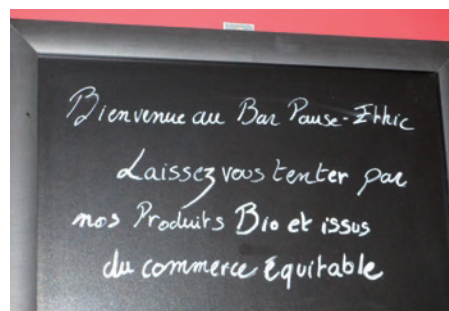 Bienvenue au Bar Pause-Ethic
Laissez vous tenter par
nos Produits Bio et issus
du commerce Equitable